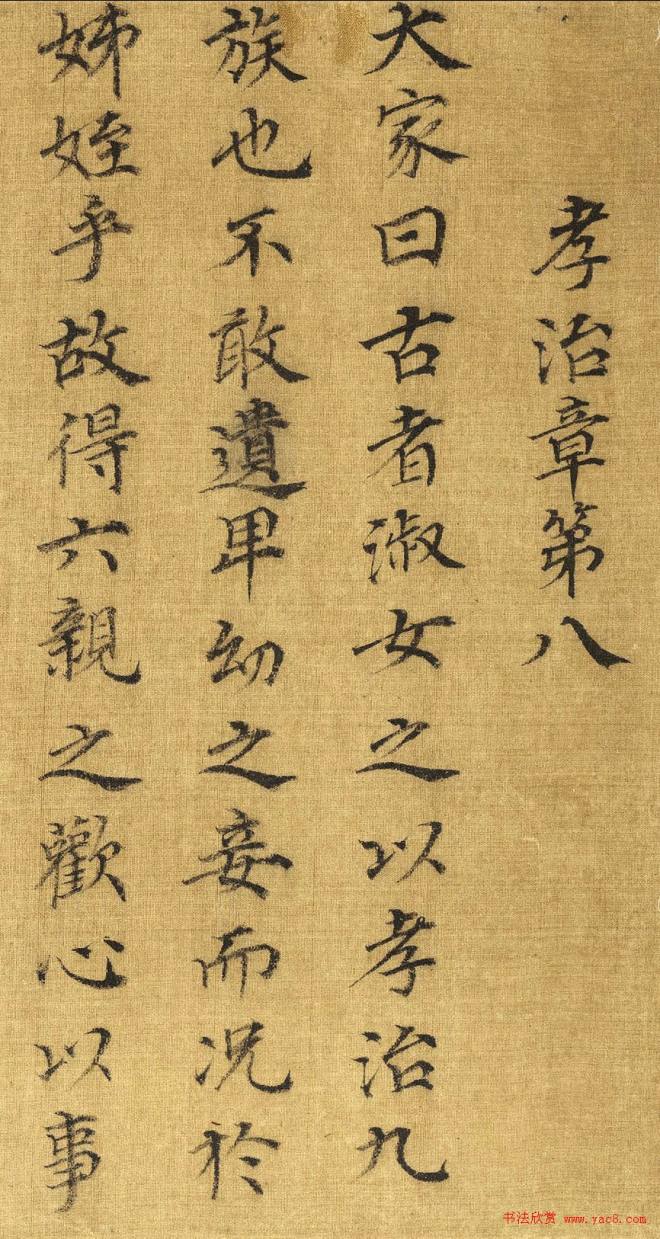 孝治章第八
大家曰古者淑女之以孝治九
族也不敢遺卑幼之妾而況於
姊姪乎故得六親之歡心以事
书法欣赏 www.yac8.com